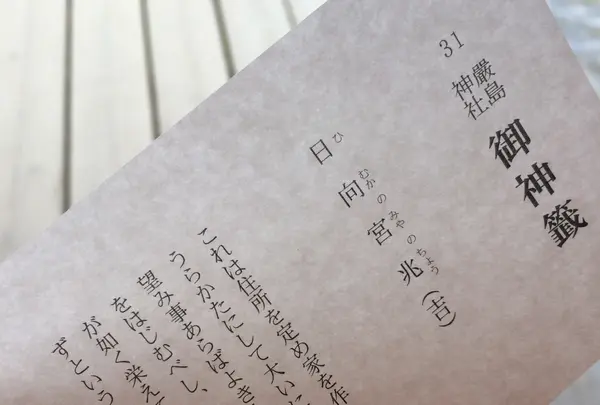 31
嚴島
神社
御神籤
日向宮兆(吉)
ひむかのみやのちょう
これは住所を定め家を作
うらかたにして大いに
望み事あらばよき
をはじむべし、
が如く栄えて
ずという